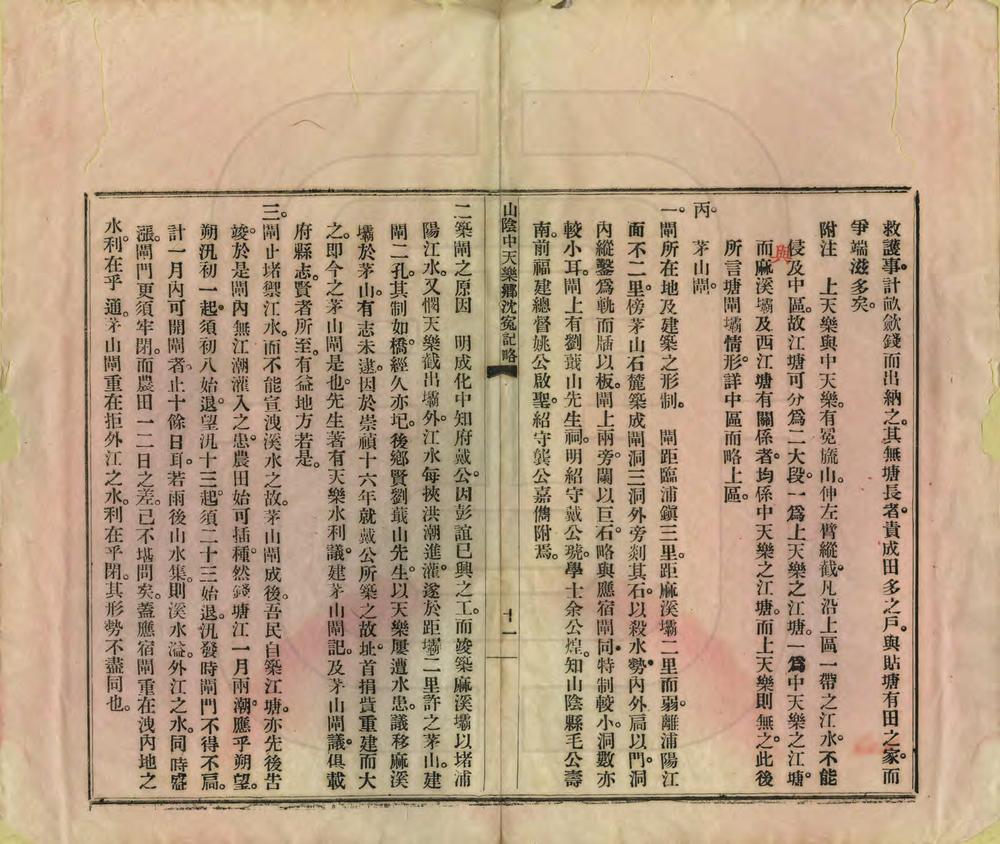 救護事計畝歛錢而出納之。其無塘長者責成田多之戶。與貼塘有田之家。而
爭端滋多矣。
附注　上天樂與中天樂。有冕旒山伸左臂縱截。凡沿上區一帶之江水。不能
侵及中區。故江塘可分爲二大段。一爲上天樂之江塘。一爲中天樂之江塘。
而麻溪壩及西江塘有關係者。均係中天樂之江塘。而上天樂則無之。此後
與
所言塘閘壩情形。詳中區而略上區。
丙。　茅山閘。
一。閘所在地及建築之形制。　閘距臨浦鎮三里。距麻溪壩二里而弱。離浦陽江
面不二里。傍茅山石麓築成閘洞三洞。外旁剡其石。以殺水勢。內外扃以門。洞
內縱鑿爲軌而牐以板。閘上兩旁闌以巨石。略與應宿閘同。特制較小。洞數亦
較小耳。閘上有劉蕺山先生祠。明紹守戴公琥。學士余公煌。知山陰縣毛公壽
南。前福建總督姚公啟聖。紹守龔公嘉儁附焉。
山陰中天樂鄉沈冤記略
十一
二築閘之原因　明成化中知府戴公。因彭誼已興之工。而竣築麻溪壩以堵浦
陽江水。又憫天樂截出壩外。江水每挾洪潮進灌。遂於距壩二里許之茅山。建
閘二孔。其制如橋。經久亦圮。後鄉賢劉蕺山先生。以天樂屢遭水患。議移麻溪
壩於茅山。有志未逮。因於崇禎十六年就戴公所築之故址。首捐貲重建而大
之。即今之茅山閘是也。先生著有天樂水利議。建茅山閘記。及茅山閘議。俱載
府縣志。賢者所至。有益地方若是。
三。閘止堵禦江水。而不能宣洩溪水之故。茅山閘成後。吾民自築江塘。亦先後告
竣。於是閘內無江潮灌入之患。農田始可插種。然錢塘江一月兩潮。應乎朔望。
朔汛初一起。須初八始退。望汛十三起。須二十三始退。汛發時閘門不得不扃。
計一月內可開閘者。止十餘日耳。若雨後山水集。則溪水溢。外江之水。同時盛
漲。閘門更須牢閉。而農田一二日之差。已不堪問矣。蓋應宿閘重在洩內地之
水。利在乎通。茅山閘重在拒外江之水。利在乎閉。其形勢不盡同也。